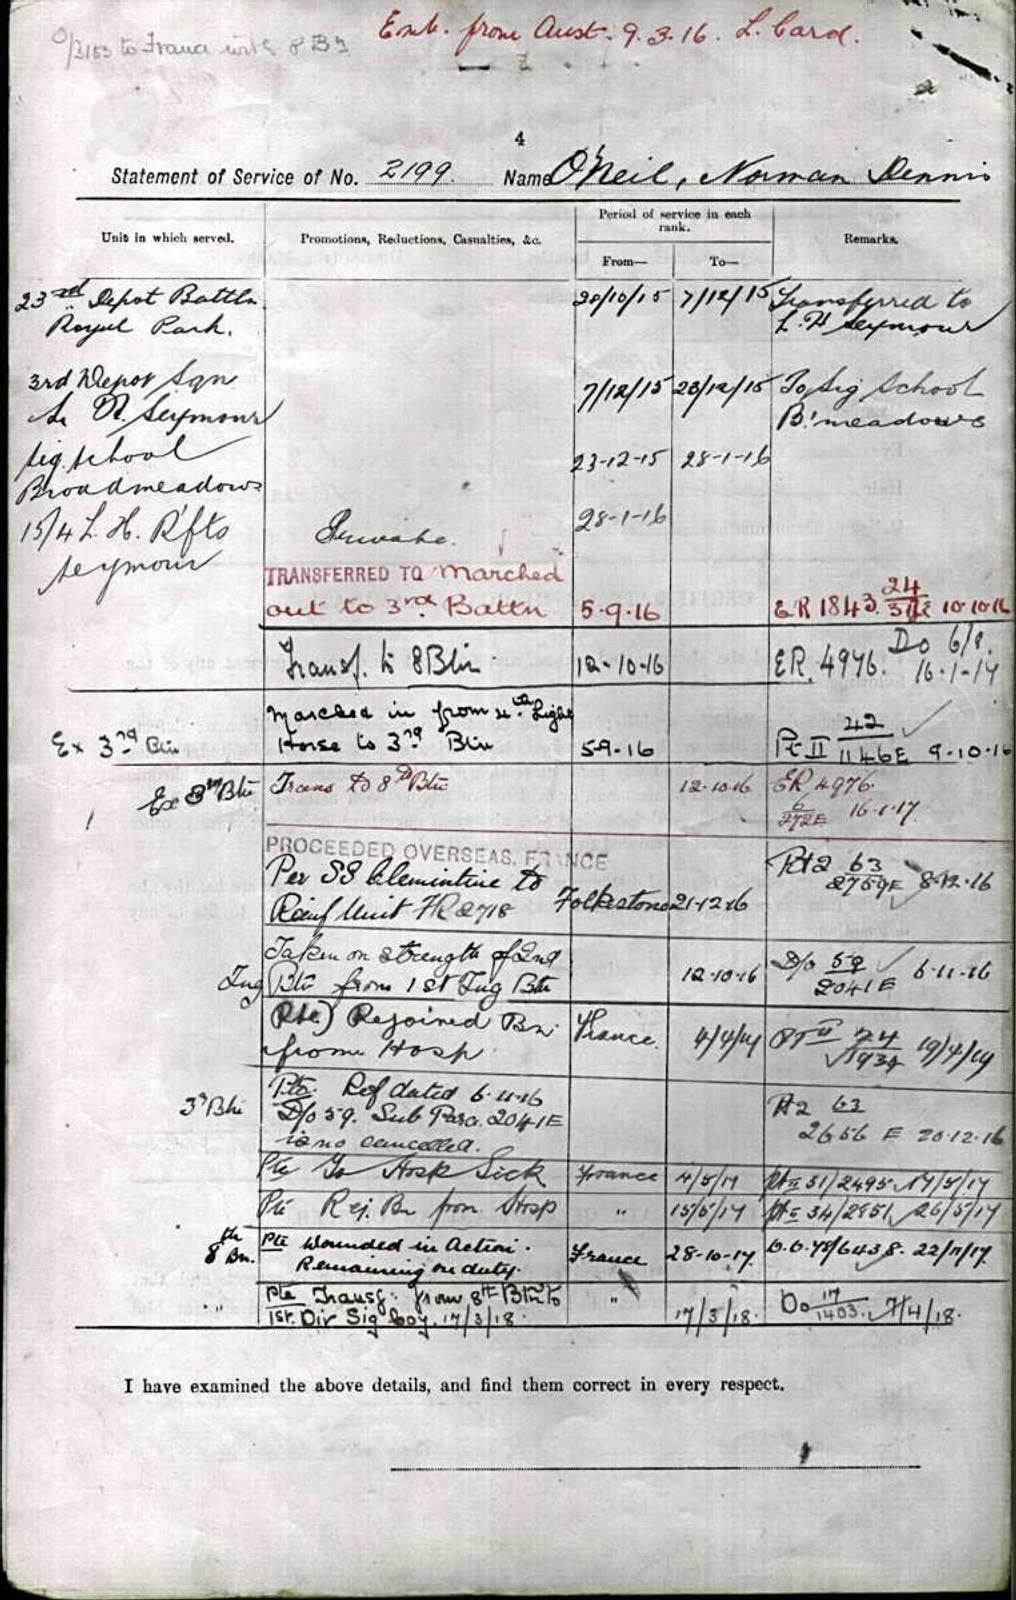 to France with 8 Bn
Emb. from Aust. 9.3.16. L. Card.
4
Statement of Service of No. 2199. Name O'Neil, Norman Dennis
Unit in which served.
Promotions, Reductions, Casualties, &c.
Period of service in each rank.
From—
To—
Remarks.
23rd Depot Battn 28/10/15 7/12/15 Transferred to
Royal Park. L.H Seymour
3rd Depot Sqn 7/12/15 23/12/15 To Sig School
L. H. Seymour B'meadows
Sig. School 23-12-15 28-1-16
Broadmeadows
15/4 L. H. R'fts Private. 28-1-16
Seymour
TRANSFERRED TO Marched
out to 3rd Battn 5-9-16 ER 1843 24 10-10-16
Transf. to 8 Btn 12-10-16 ER. 4976. Do 6/8. 16-1-17
Marched in from 4th Light
Ex 3rd Btn Horse to 3rd Btn 5-9-16 Pt II 42/1146E 9-10-16
Ex 3rd Btn Trans to 8th Btn 12-10-16 ER 4976.
6/272E 16-1-17
PROCEEDED OVERSEAS, FRANCE
Per SS Clementine to Folkestone 21-12-16 Pt 2 63/2759E 8-12-16
Reinf Unit FR 2718
Taken on strength of 2nd
Trng Btn from 1st Trng Btn 12-10-16 D/o 59/2041E 6-11-16
Pte) Rejoined Bn France. 4/4/17 PT II 24/1934 19/4/17
from Hosp
3rd Btn Pte. Ref dated 6-11-16 Pt 2 63
D/o 59. Sub Para. 2041E 2656 E 20-12-16
is no cancelled.
Pte To Hosp Sick France 4/5/17 Pt II 31/2495 17/5/17
Pte Rej. Bn from Hosp " 15/5/17 Pt II 34/2851 26/5/17
8th Bn. Pte Wounded in Action. France 28-10-17. D.O.78/6438. 22/11/17.
Remaining on duty.
" Pte Transf: from 8th Btn to " 17/3/18. Do 17/1403. 7/4/18.
1st. Div Sig Coy. 17/3/18.
I have examined the above details, and find them correct in every respect.